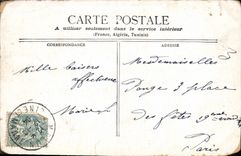 CARTE POSTALE
A utiliser seulement dans le service intérieur
(France, Algérie, Tunisie)
CORRESPONDANCE
ADRESSE
Mille baisers
affectueux
Marie
Mesdemoiselles
3 place
des fêtes 19me
Paris